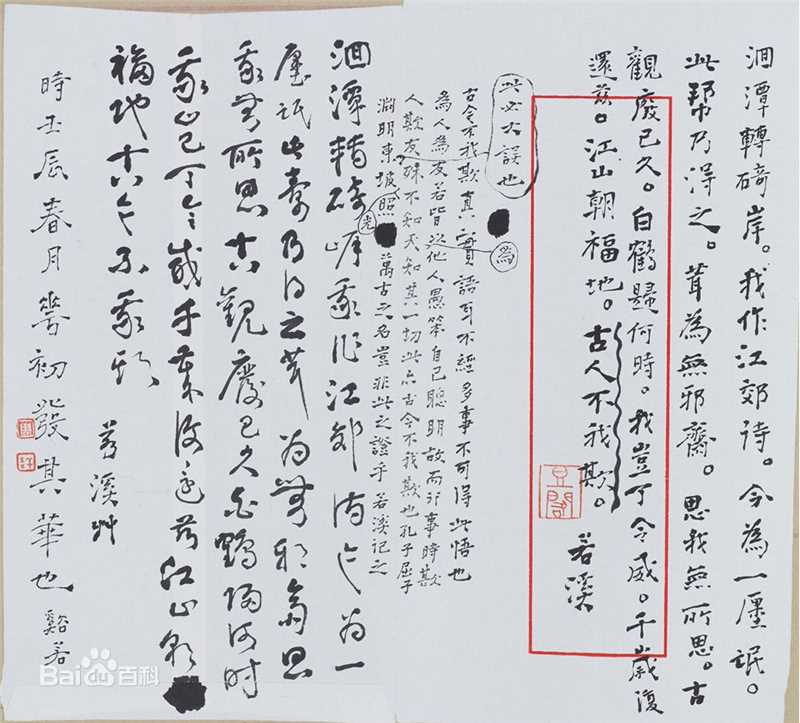 洄潭轉碕岸。我作江郊詩。今為一廛氓。
此幫乃得之。葺為無邪齋。思我無所思。古
觀廢已久。白鶴歸何時。我豈丁令威。千歲復
還茲。江山朝福地。古人不我欺。
若溪
此必大誤也
為
古今不我欺真實語耳不經多事不可得此悟也
為人為友若皆以他人愚笨自己聰明故而行事時甚
人欺友殊不知天知其一切此亦古今不我欺也孔子屈子
淵明東坡照萬古之名豈非此之證乎 若溪記之
光
洄潭轉碕岸我作江郊詩今為一
廛氓此乃得之葺為無邪齋思
我無所思古觀廢已久白鶴歸何時
我豈丁令威千歲復還茲江山朝
福地古人不我欺
若溪艸
時壬辰春月初發其華也 谿若
Baidu百科